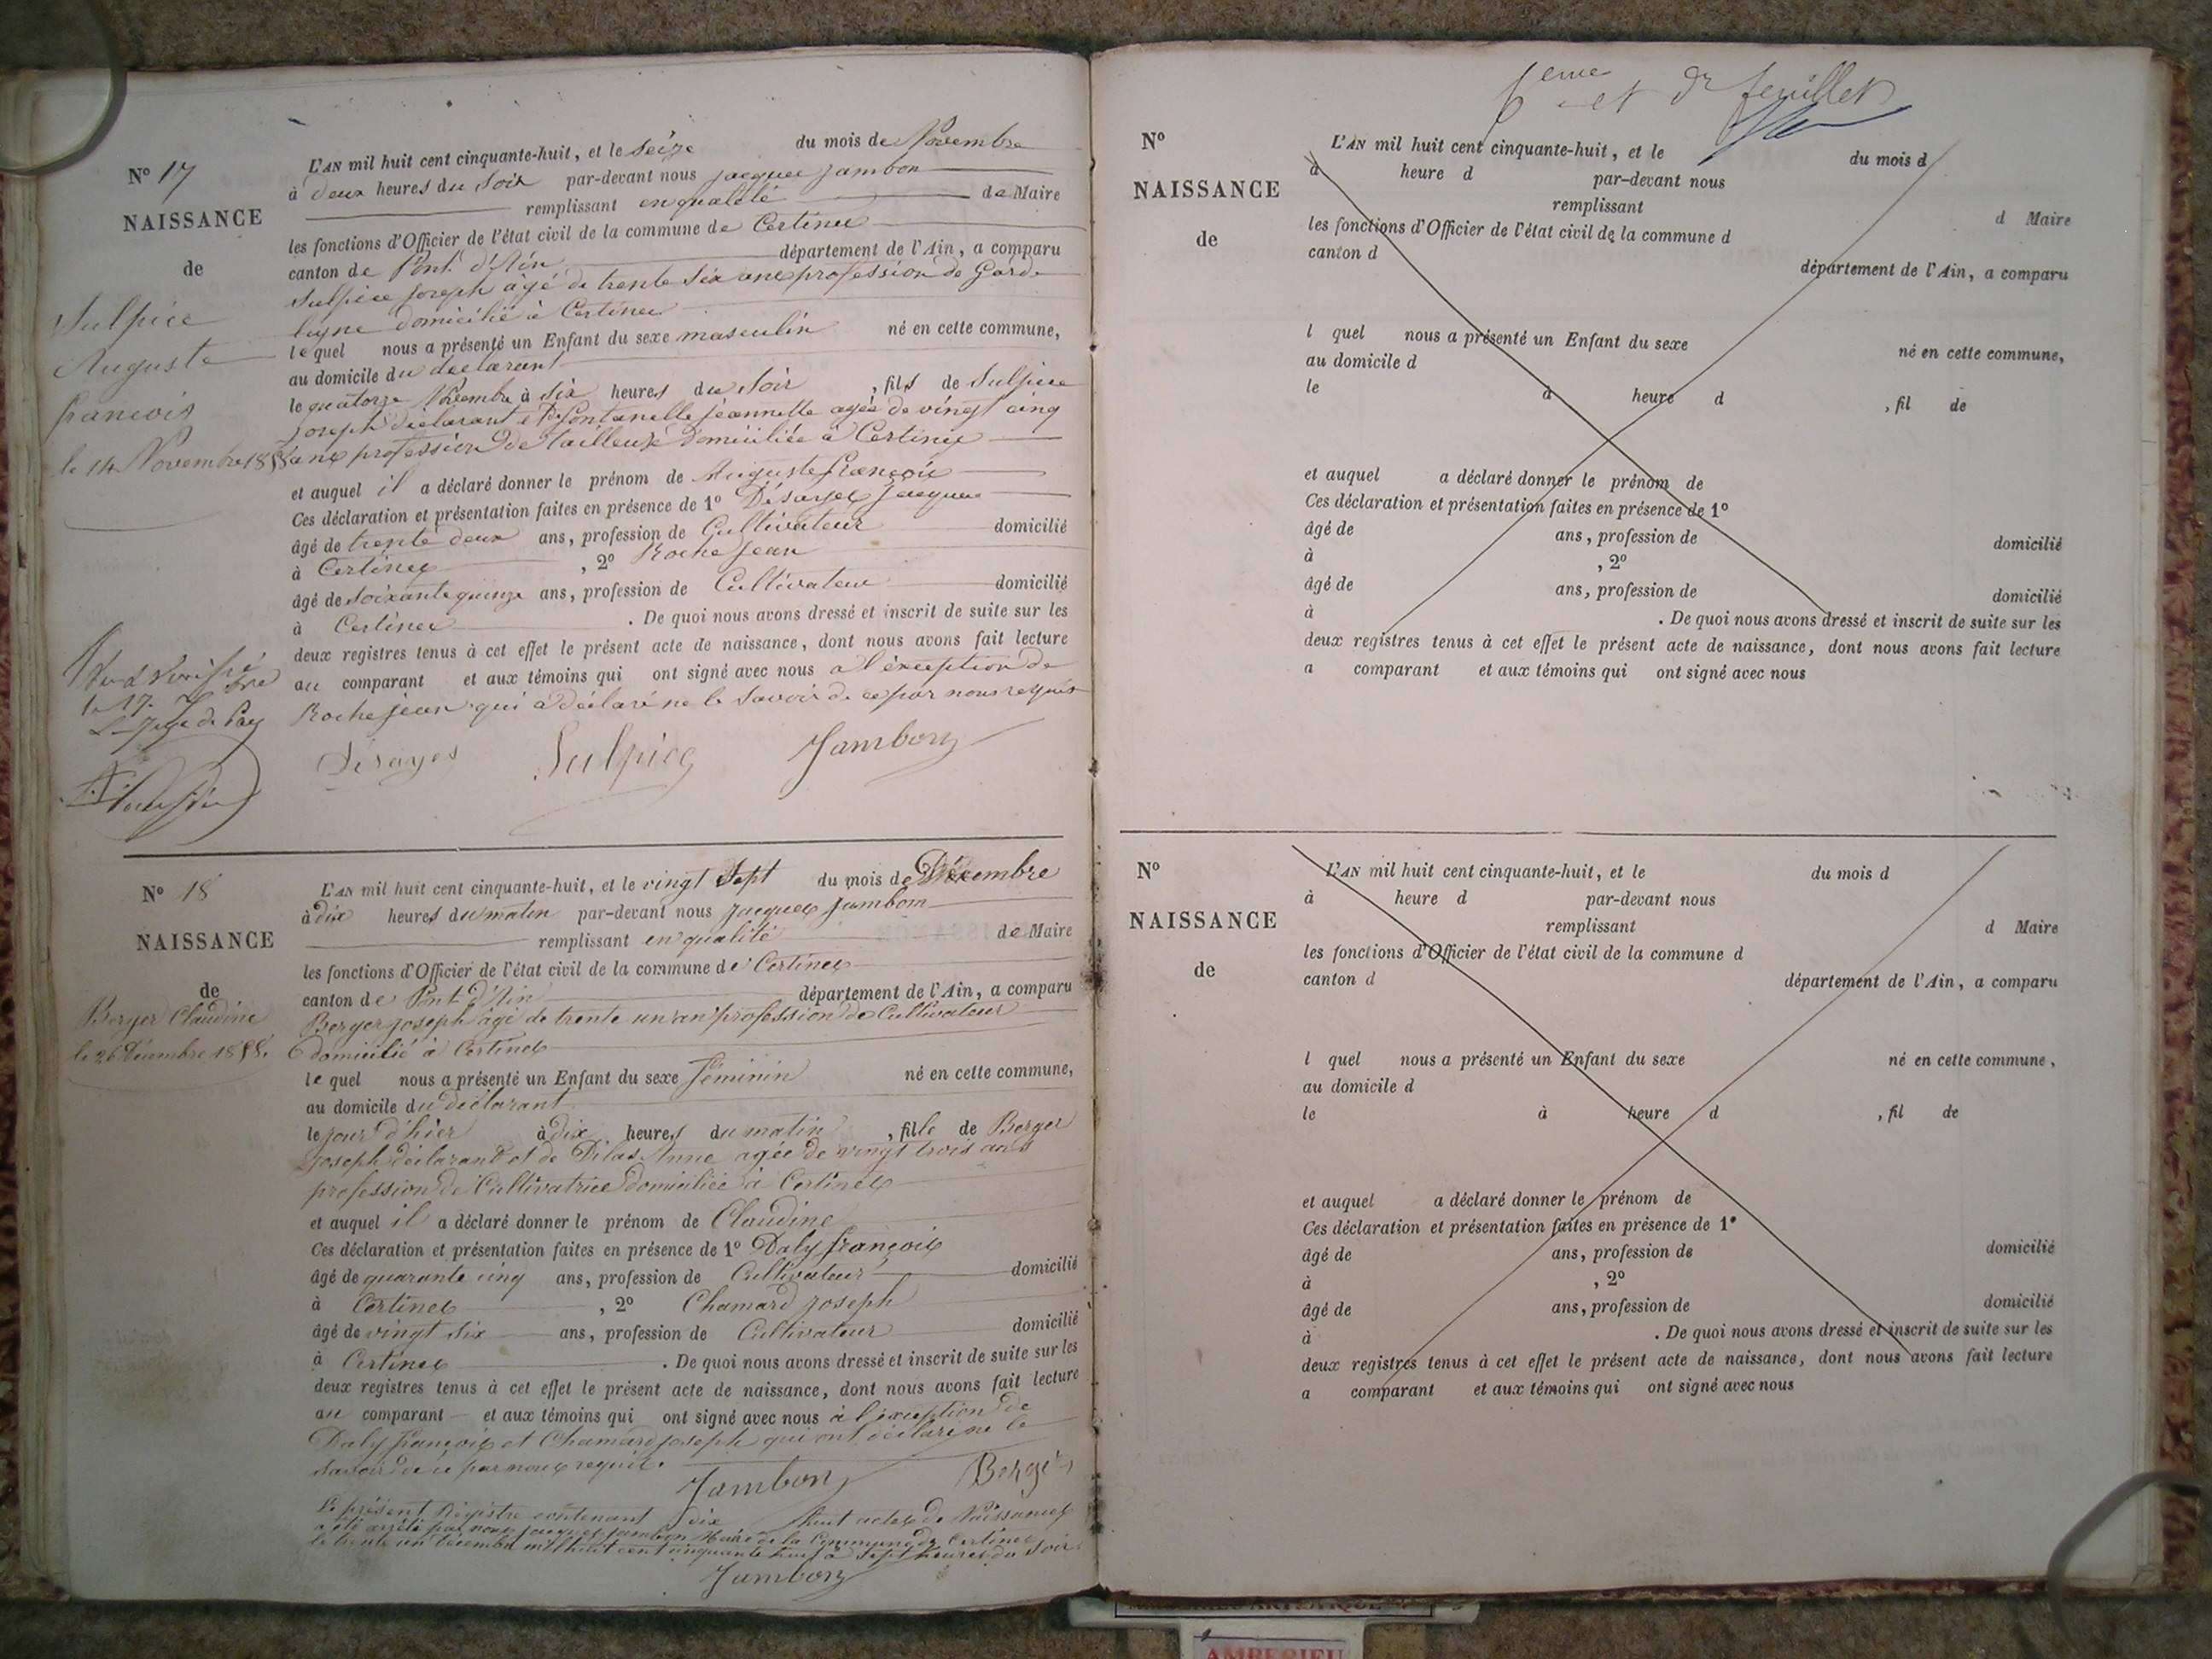 N° 17
NAISSANCE
de
Sulpice
Auguste
francois
le 14 Novembre 1858
L'AN mil huit cent cinquante-huit, et le Seize du mois de Novembre
à deux heures du Soir par-devant nous jacques jambon
remplissant en qualité de Maire
les fonctions d'Officier de l'état civil de la commune de Certines
canton de Pont d'Ain département de l'Ain, a comparu
Sulpice joseph âgé de trente six ans profession de Garde
ligne domicilié à Certines
lequel nous a présenté un Enfant du sexe masculin né en cette commune,
au domicile du déclarant
le quatorze Novembre à six heures du Soir, fils de Sulpice
joseph déclarant et de fontanelle jeannette agée de vingt cinq
ans profession de tailleuse domiciliée à Certines
et auquel il a déclaré donner le prénom de Auguste françois
Ces déclaration et présentation faites en présence de 1° Désayes jacques
âgé de trente deux ans, profession de Cultivateur domicilié
à Certines, 2° Roche jean
âgé de soixante quinze ans, profession de Cultivateur domicilié
à Certines. De quoi nous avons dressé et inscrit de suite sur les
deux registres tenus à cet effet le présent acte de naissance, dont nous avons fait lecture
au comparant et aux témoins qui ont signé avec nous a l'exception de
Roche jean qui a déclaré ne le Savoir de ce par nous requis
Désayes Sulpice Jambon
Vu et Vérifié
le 17
Le juge de Paix
N° 18
NAISSANCE
de
Berger Claudine
le 26 Décembre 1858.
L'AN mil huit cent cinquante-huit, et le vingt Sept du mois de Décembre
à dix heures du matin par-devant nous jacques jambon
remplissant en qualité de Maire
les fonctions d'Officier de l'état civil de la commune de Certines
canton de Pont d'Ain département de l'Ain, a comparu
Berger joseph âgé de trente un an profession de Cultivateur
domicilié à Certines
lequel nous a présenté un Enfant du sexe féminin né en cette commune,
au domicile du déclarant
le jour d'hier à dix heures du matin, fille de Berger
joseph déclarant et de Dilas Anne agée de vingt trois ans
profession de Cultivatrice domiciliée à Certines
et auquel il a déclaré donner le prénom de Claudine
Ces déclaration et présentation faites en présence de 1° Daly françois
âgé de quarante cinq ans, profession de Cultivateur domicilié
à Certines, 2° Chamard joseph
âgé de vingt six ans, profession de Cultivateur domicilié
à Certines. De quoi nous avons dressé et inscrit de suite sur les
deux registres tenus à cet effet le présent acte de naissance, dont nous avons fait lecture
au comparant et aux témoins qui ont signé avec nous à l'exception de
Daly françois et Chamard joseph qui ont déclaré ne le
Savoir de ce par nous requis.
Jambon Berger
Le présent Registre contenant dix huit actes de Naissances
a été arrêté par nous jacques jambon Maire de la Commune de Certines
le trente un Décembre mil huit cent cinquante huit à Sept heures du Soir
Jambon
6eme et dr feuillet
N°
NAISSANCE
de
L'AN mil huit cent cinquante-huit, et le du mois d
à heure d par-devant nous
remplissant d Maire
les fonctions d'Officier de l'état civil de la commune d
canton d département de l'Ain, a comparu
l quel nous a présenté un Enfant du sexe né en cette commune,
au domicile d
le à heure d, fil de
et auquel a déclaré donner le prénom de
Ces déclaration et présentation faites en présence de 1°
âgé de ans, profession de domicilié
à, 2°
âgé de ans, profession de domicilié
à. De quoi nous avons dressé et inscrit de suite sur les
deux registres tenus à cet effet le présent acte de naissance, dont nous avons fait lecture
a comparant et aux témoins qui ont signé avec nous
N°
NAISSANCE
de
L'AN mil huit cent cinquante-huit, et le du mois d
à heure d par-devant nous
remplissant d Maire
les fonctions d'Officier de l'état civil de la commune d
canton d département de l'Ain, a comparu
l quel nous a présenté un Enfant du sexe né en cette commune,
au domicile d
le à heure d, fil de
et auquel a déclaré donner le prénom de
Ces déclaration et présentation faites en présence de 1°
âgé de ans, profession de domicilié
à, 2°
âgé de ans, profession de domicilié
à. De quoi nous avons dressé et inscrit de suite sur les
deux registres tenus à cet effet le présent acte de naissance, dont nous avons fait lecture
a comparant et aux témoins qui ont signé avec nous